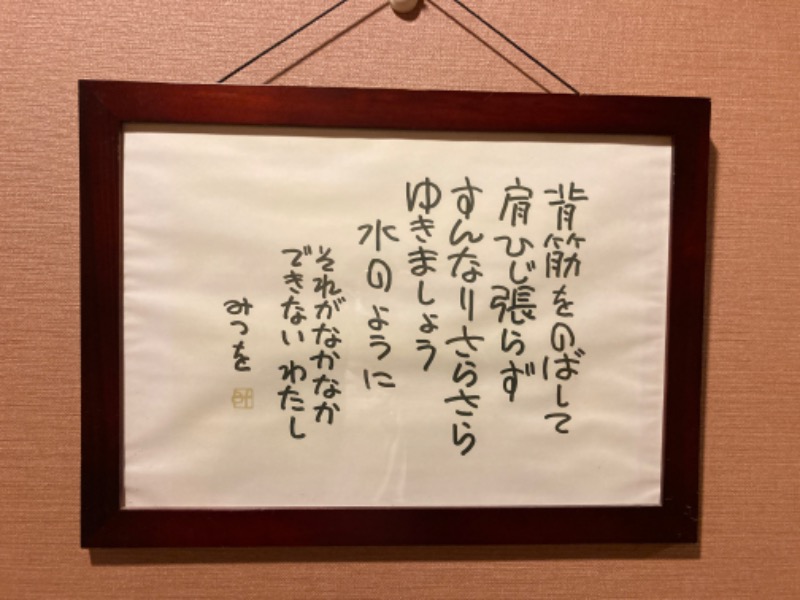 背筋をのばして
肩ひじ張らず
すんなりさらさら
ゆきましょう
水のように
それがなかなか
できないわたし
みつを